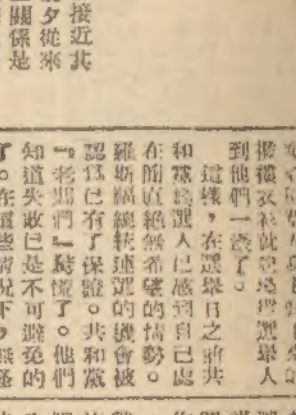 接近其
夕從來
關係是
選舉人
到他們一邊了。
這樣，在選舉日之前共
和黨候選人已感到自己處
在簡直絕無希望的情勢。
羅斯福總統連選的機會被
認爲已有了保證。共和黨
『老闆們』驚慌了。他們
知道失敗已是不可避免的
了。在這些情況下，無怪